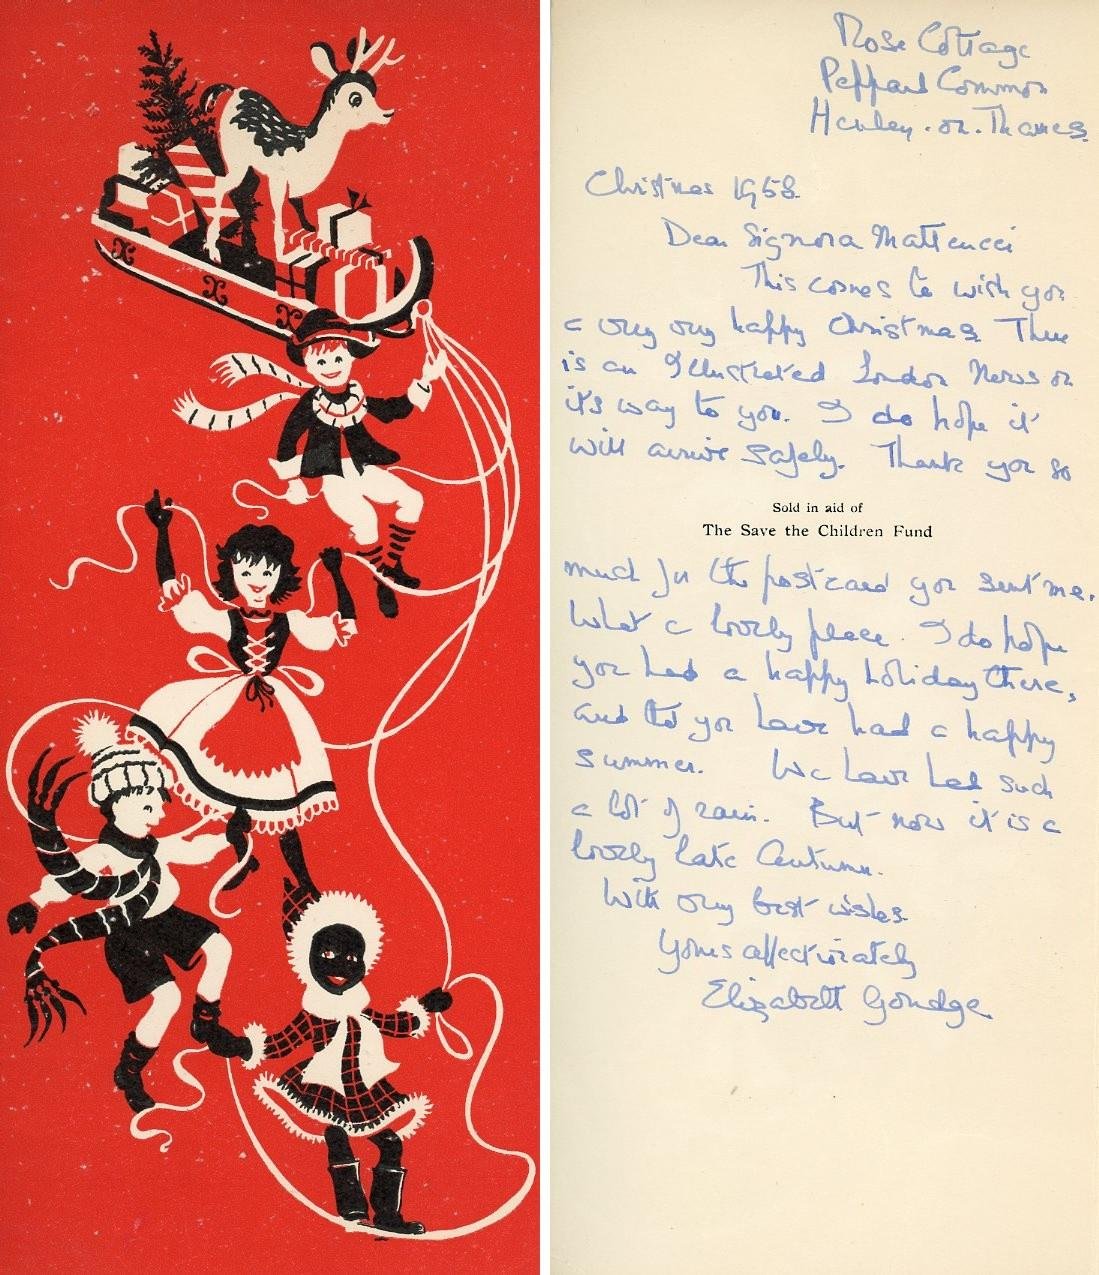 Rose Cottage
Peppard Common
Henley-on-Thames.
Christmas 1958.
Dear Signora Matteucci
This comes to wish you
a very very happy Christmas. There
is an Illustrated London News on
it's way to you. I do hope it
will arrive safely. Thank you so
Sold in aid of
The Save the Children Fund
much for the postcard you sent me.
What a lovely place. I do hope
you had a happy holiday there,
and that you have had a happy
summer. We have had such
a lot of rain. But now it is a
lovely late Autumn.
With every best wishes.
Yours affectionately
Elizabeth Goudge